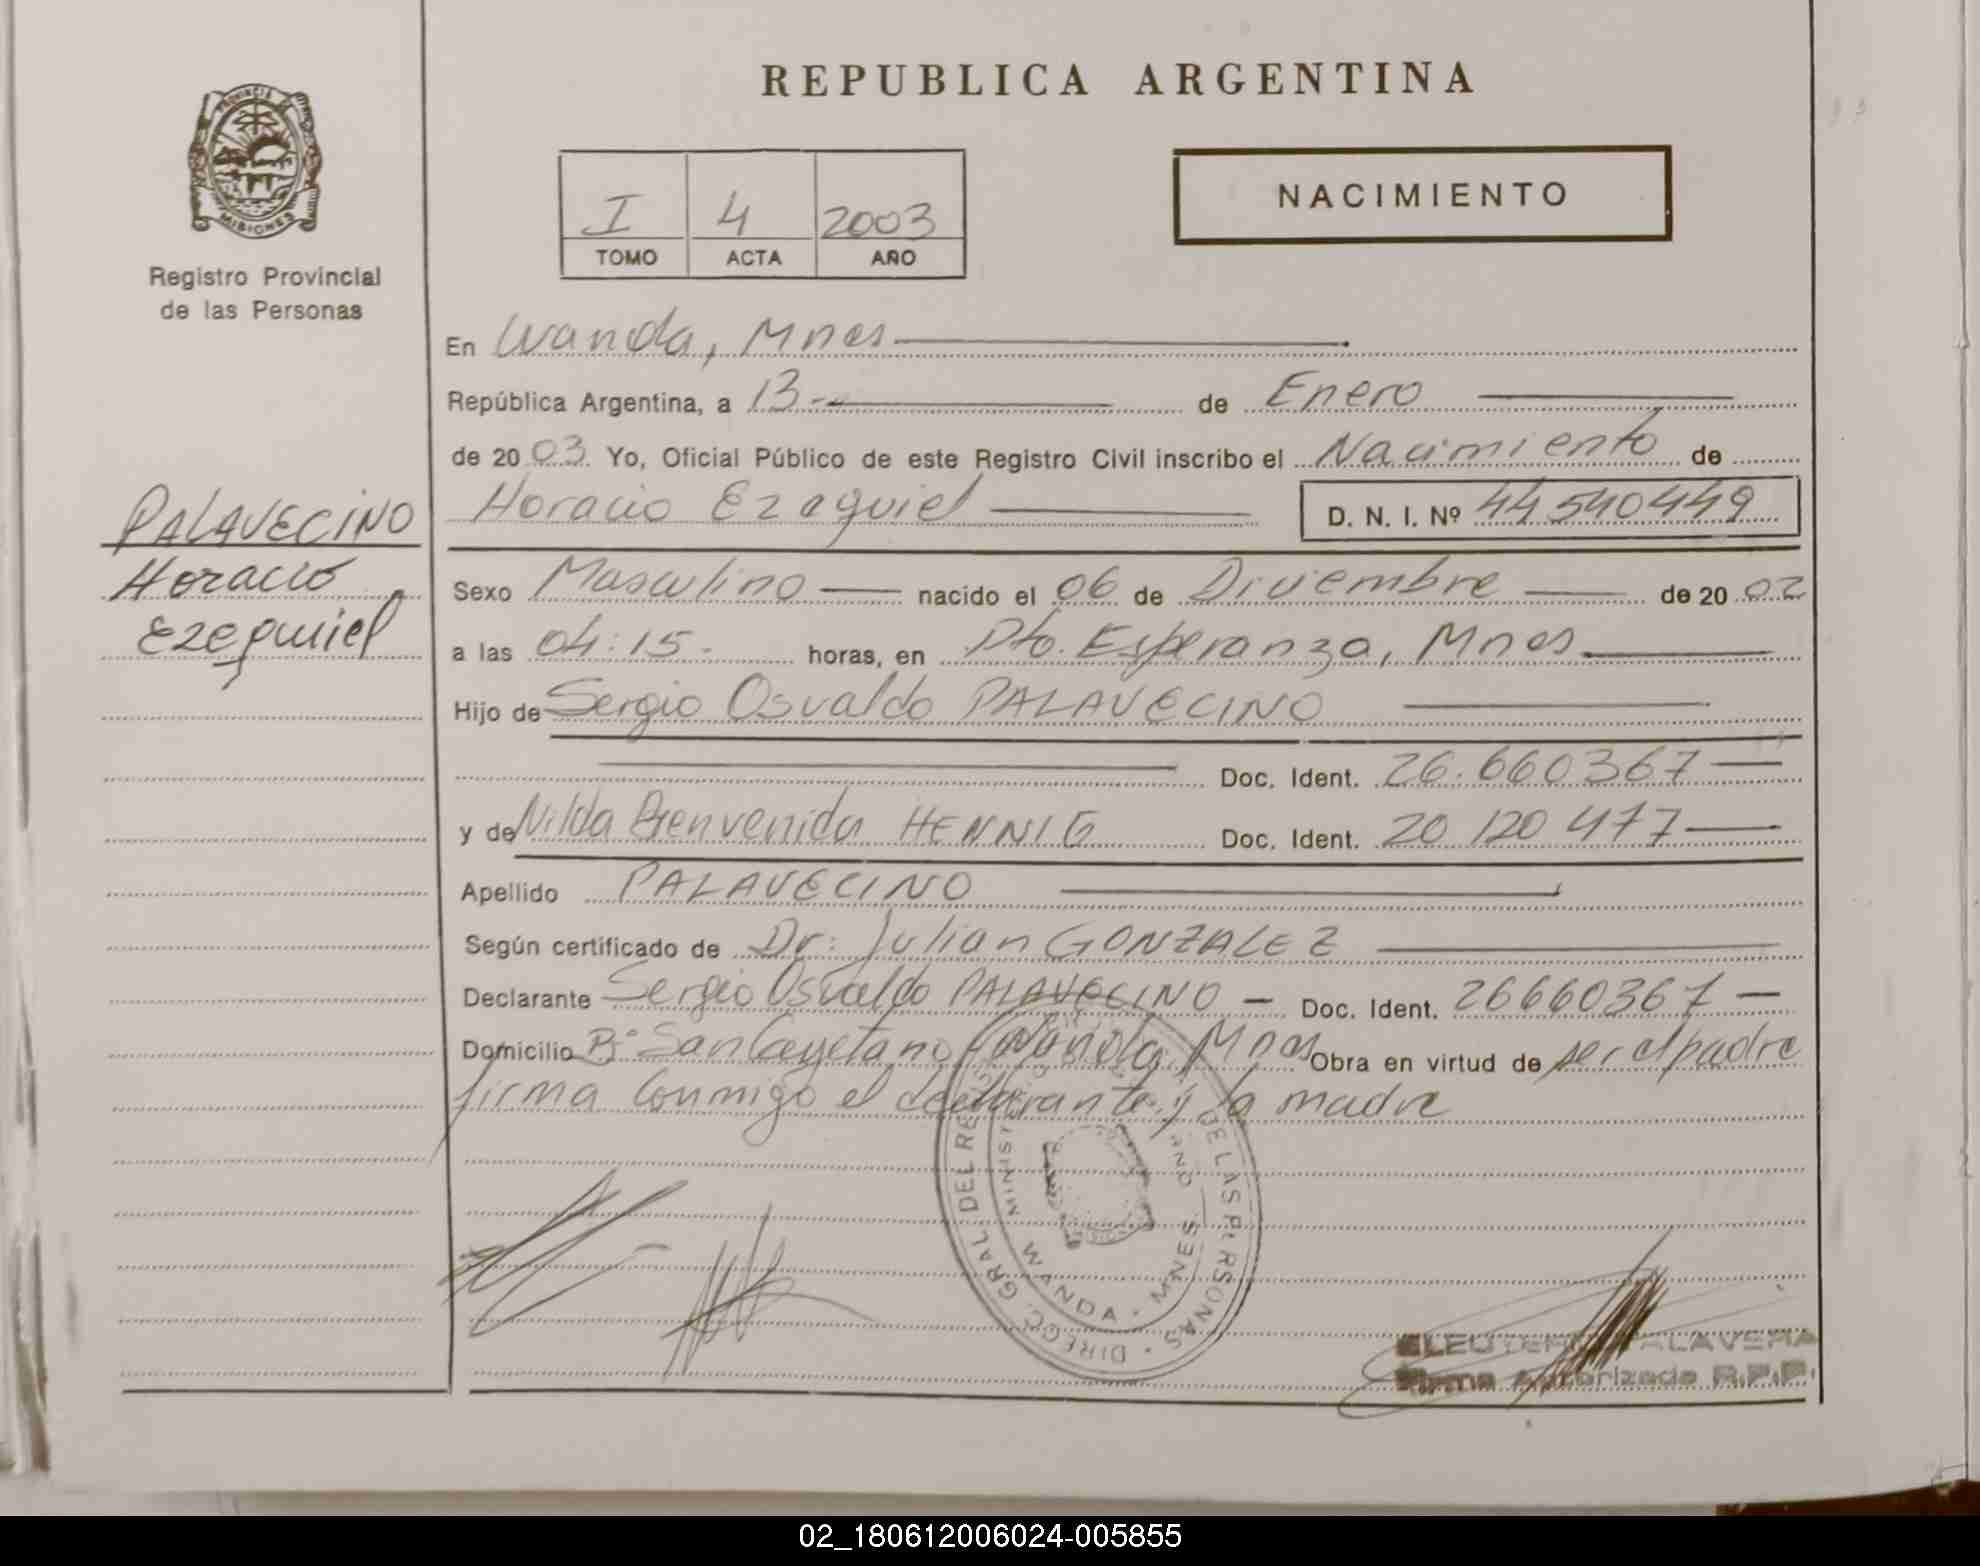 REPUBLICA ARGENTINA
PROVINCIA DE
MISIONES
Registro Provincial
de las Personas
I 4 2003
TOMO ACTA AÑO
NACIMIENTO
En Wanda, Mnes
República Argentina, a 13 de Enero
de 2003 Yo, Oficial Público de este Registro Civil inscribo el Nacimiento de
Horacio Ezequiel D. N. I. Nº 44540449
PALAVECINO
Horacio
Ezequiel
Sexo Masculino nacido el 06 de Diciembre de 2002
a las 04:15. horas, en Pto. Esperanza, Mnes
Hijo de Sergio Osvaldo PALAVECINO
Doc. Ident. 26.660367
y de Nilda Bienvenida HENNIG Doc. Ident. 20 120 477
Apellido PALAVECINO
Según certificado de Dr: Julian GONZALEZ
Declarante Sergio Osvaldo PALAVECINO - Doc. Ident. 26660367
Domicilio Bº San Cayetano Wanda Mnes Obra en virtud de ser el padre
firma conmigo el declarante y la madre
DIRECC. GRAL DEL DE LAS PERSONAS
WANDA · MNES.
Firma Autorizada R.P.P.
02_180612006024-005855